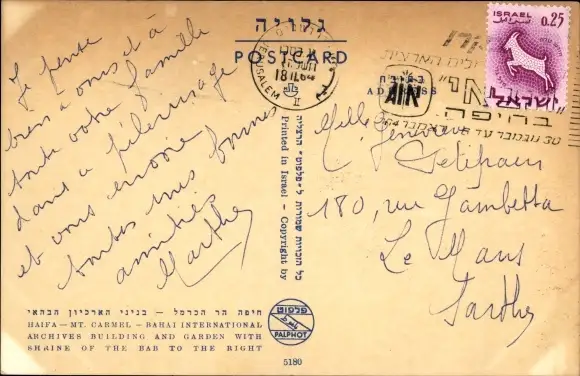 גלויה
POSTCARD
Je pense
bien à vous et à
toute votre famille
dans ce pèlerinage
et vous envoie
toutes mes bonnes
amitiés
Marthe
JERUSALEM
18 11 64
ISRAEL
0.25
ישראל
בחיפה
30 נובמבר עד
AIR
הכתובת
ADDRESS
Mlle Geneviève
180, rue Gambetta
Le Mans
Sarthe
כל הזכויות שמורות ל"פלפוט" הרצליה
Printed in Israel – Copyright by
פלפוט
PALPHOT
חיפה הר הכרמל – בניני הארכיון הבהאי
HAIFA – MT. CARMEL – BAHAI INTERNATIONAL
ARCHIVES BUILDING AND GARDEN WITH
SHRINE OF THE BAB TO THE RIGHT
5180